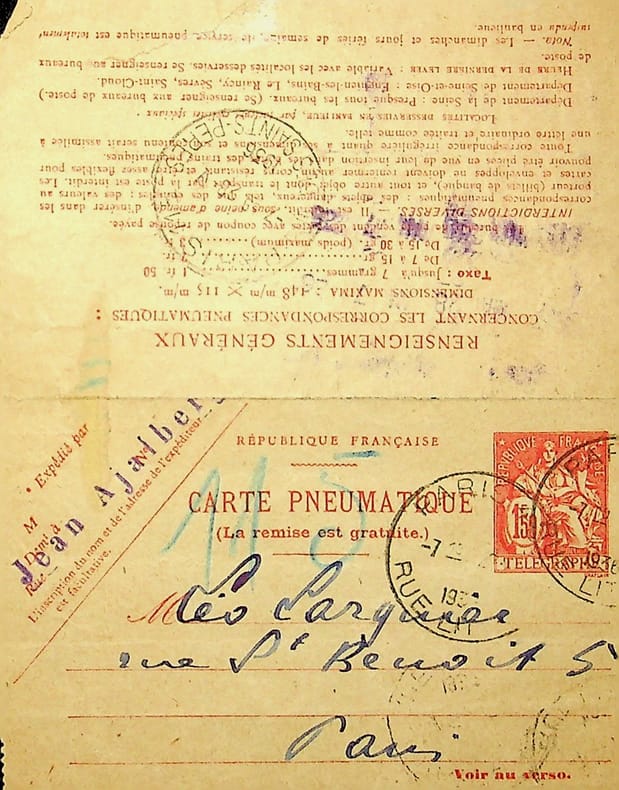 RENSEIGNEMENTS GÉNÉRAUX
CONCERNANT LES CORRESPONDANCES PNEUMATIQUES :
DIMENSIONS MAXIMA : 148 m/m × 115 m/m.
Taxe : Jusqu'à 7 grammes 1 fr 50
De 7 à 15 gr. fr.
De 15 à 30 gr. (poids maximum) fr
Les bureaux de poste vendent des cartes avec coupon de réponse payée.
INTERDICTIONS DIVERSES. — Il est interdit, sous peine d'amende, d'insérer dans les
correspondances pneumatiques : des objets dangereux, tels que des épingles ; des valeurs au
porteur (billets de banque), et tout autre objet dont le transport par la poste est interdit. Les
cartes et enveloppes ne doivent renfermer aucun corps résistant et être assez flexibles pour
pouvoir être pliées en vue de leur insertion dans les étuis des trains pneumatiques.
Toute correspondance irrégulière quant à ses dimensions et à son contenu serait assimilée à
une lettre ordinaire et traitée comme telle.
LOCALITÉS DESSERVIES EN BANLIEUE, par spéciaux :
Département de la Seine : Presque tous les bureaux. (Se renseigner aux bureaux de poste.)
Département de Seine-et-Oise : Enghien-les-Bains, Le Raincy, Sèvres, Saint-Cloud.
HEURE DE LA DERNIÈRE LEVÉE : Variable avec les localités desservies. Se renseigner aux bureaux
de poste.
Nota. — Les dimanches et jours fériés de semaine, le service pneumatique est totalement
suspendu en banlieue.
Expédié par
M
Jean Ajalbert
Rue
L'inscription du nom et de l'adresse de l'expéditeur
est facultative.
RÉPUBLIQUE FRANÇAISE
CARTE PNEUMATIQUE
(La remise est gratuite.)
115
RÉPUBLIQUE FRANÇAISE
1F50
TELEGRAPHE
PARIS
RUE
M Léo Larguier
rue St Benoit 5
Paris
Voir au verso.